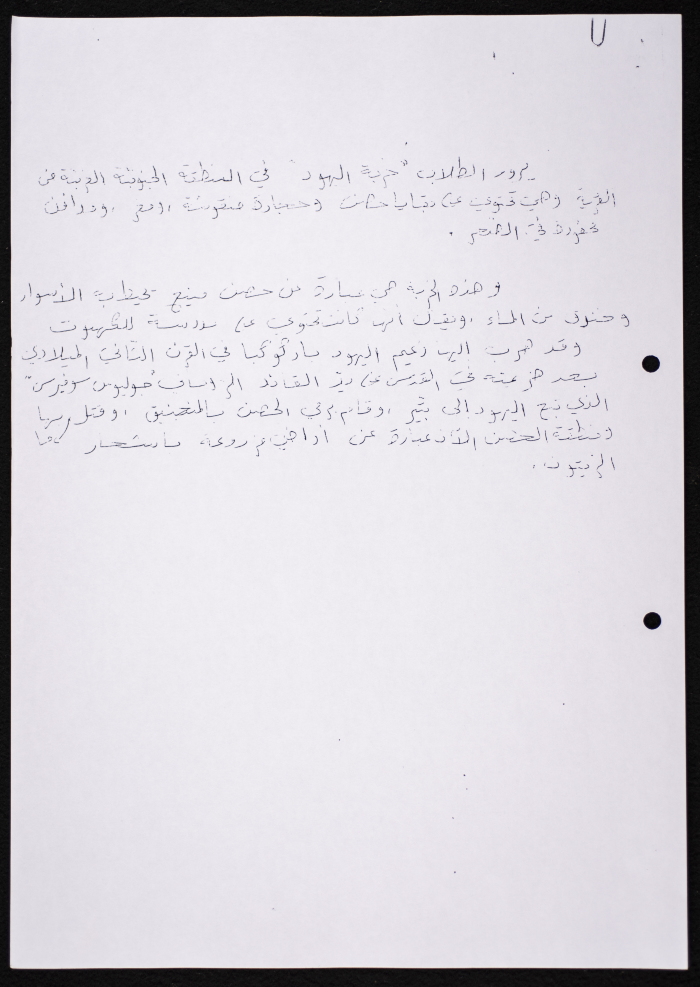 يزور الطلاب "خربة اليهود" في المنطقة الجنوبية الغربية من
القرية وهي تحتوي على بقايا حصن وحجارة منقوشة
محفورة في الصخر .
وهذه الخربة هي عبارة عن حصن منيع تحيط به الأسوار
وخندق من الماء ، ويقال أنها كانت تحتوي على مدرسة للكهنوت
وقد هرب اليها زعيم اليهود باركوكبا في القرن الثاني الميلادي
بعد هزيمته في القدس على يد القائد الروماني "جوليوس سوفيرس"
الذي تبع اليهود إلى بتير ، وقام برمي الحصن بالمنجنيق ، وقتل
ومنطقة الحصن الآن عبارة عن اراضي مزروعة باشجار
الزيتون .